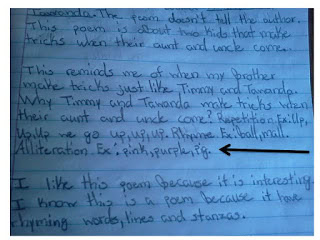 Tawanda. The poem doesn't tell the author.
This poem is about two kids that make
tricks when their aunt and uncle come.
This reminds me of when my brother
make tricks just like Timmy and Tawanda.
Why Timmy and Tawanda make tricks when
their aunt and uncle come? Repetition Ex: Up,
Up, Up we go up, up, up. Rhyme Ex: ball, mall.
Alliteration Ex: pink, purple, pig.
I like this poem because it is interesting.
I know this is a poem because it have
rhyming words, lines and stanzas.